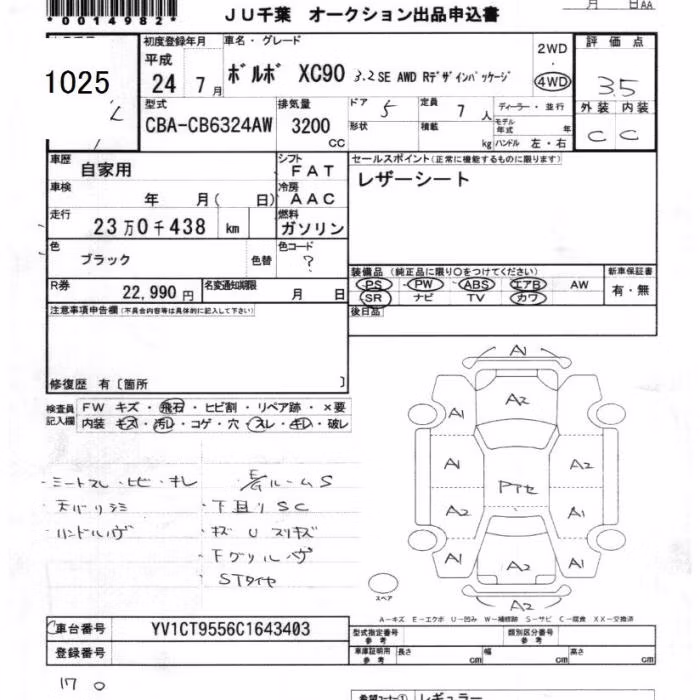 *0014982*
JU千葉 オークション出品申込書
月 日AA
1025
初度登録年月
平成
24 7月
車名・グレード
ボルボ XC90 3.2 SE AWD Rデザインパッケージ
2WD
・
4WD
評価点
3.5
外装 内装
C C
型式
CBA-CB6324AW
排気量
3200
CC
ドア 5
定員 7人
ディーラー・並行
形状
積載 kg
モデル年式 年
ハンドル 左・右
車歴
自家用
シフト
FAT
セールスポイント(正常に機能するものに限ります)
レザーシート
車検
年 月( 日)
冷房
AAC
走行
23万0千438 km
燃料
ガソリン
色
ブラック
色替
色コード
?
装備品 (純正品に限り○をつけてください)
PS ・PW ・ABS ・エアB AW
SR ナビ TV カワ
新車保証書
有・無
R券
22,990円
名変通知期限
月 日
後日品
注意事項申告欄(不具合内容等は具体的に記入して下さい)
修復歴 有〔箇所 〕
検査員記入欄
FW キズ・飛石・ヒビ割・リペア跡・×要
内装 キズ・汚レ・コゲ・穴・スレ・キレ・破レ
・シートスレ・ヒビ・キレ
ルームS
・天バリシミ
・下回りSC
・ハンドルハゲ
・キズ U スリキズ
・STタイヤ
A1
A2
A1
A1
A2
A2
A1
A1
A1
A2
A2
スペア
A-キズ E-エクボ U-凹み W-補修跡 S-サビ C-腐食 XX-交換済
車台番号
YV1CT9556C1643403
登録番号
型式指定番号 参考
類別区分番号 参考
車庫証明用 参考
長さ cm
幅 cm
高さ cm
170
希望コーナー①
レギュラー